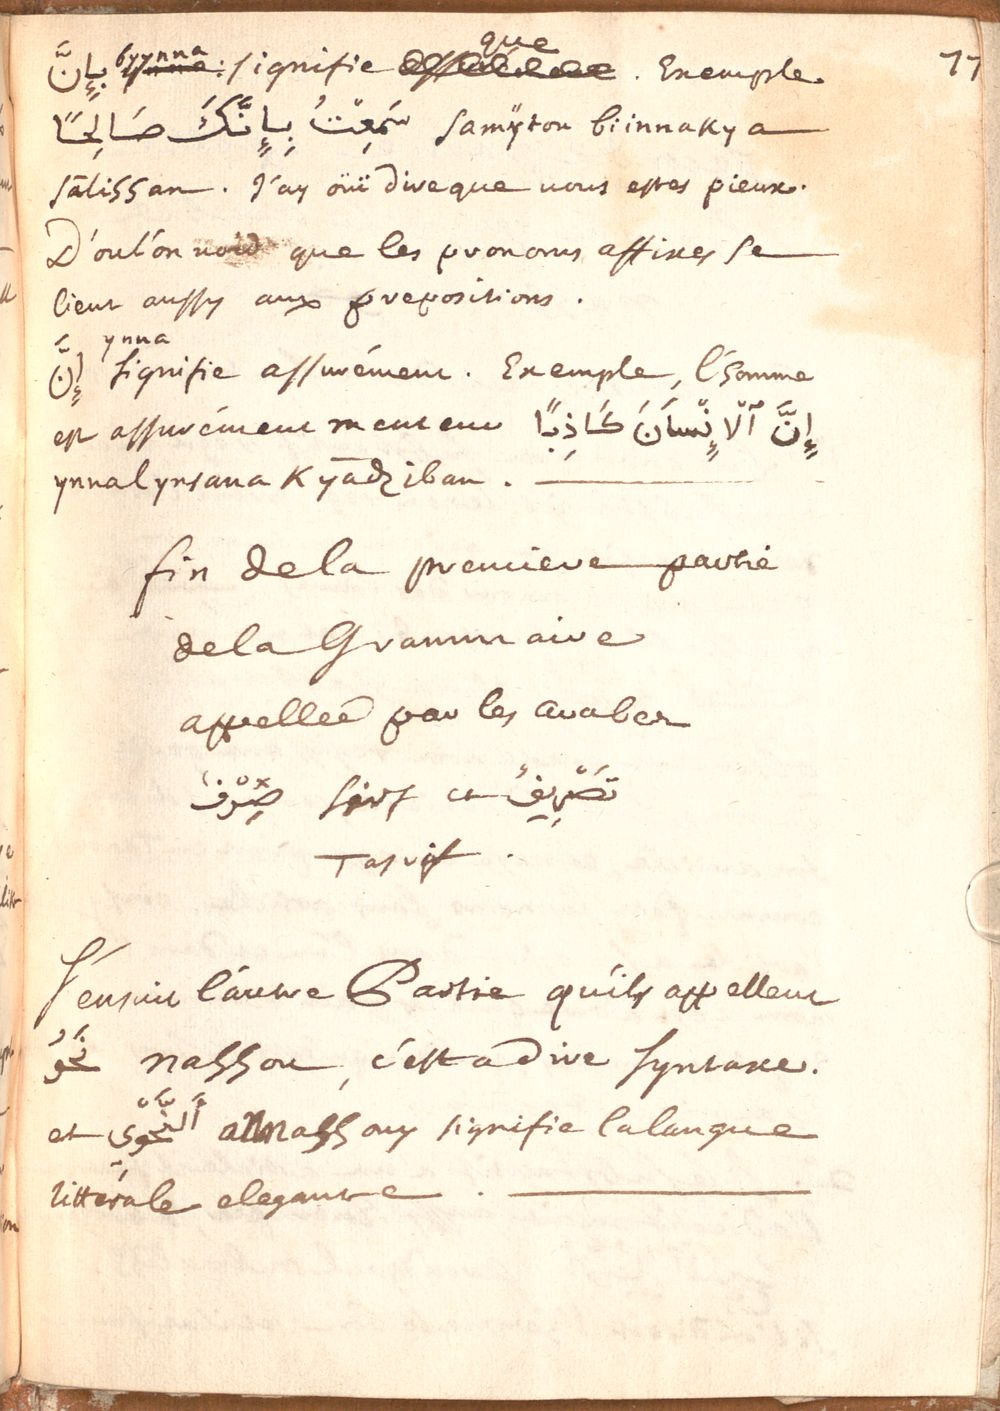 77
بِإِنَّ byynna signifie que . Exemple.
سَمِعْتُ بِإِنَّكَ صَالِحًا samÿton biinnakya
sālihhan. J'ay oüi dire que vous estes pieux.
D'ou l'on void que les pronoms affixes se
lient aussy aux prepositions .
إِنَّ ynna signifie assurément. Exemple, l'homme
est assurément menteur إِنَّ ٱلْإِنْسَانَ كَاذِبًا
ynnalynsana Kyādziban .
fin de la premiere partie
de la Grammaire
appellée par les arabes
صِرْف sirf et تَصْرِيفُ
Tasrif .
S'ensuit l'autre Partie qu'ils appellent
نَحْوُ nahhou, c'est a dire syntaxe.
et أَلنَّحْوِّي annahhouy signifie la langue
littérale elegante .